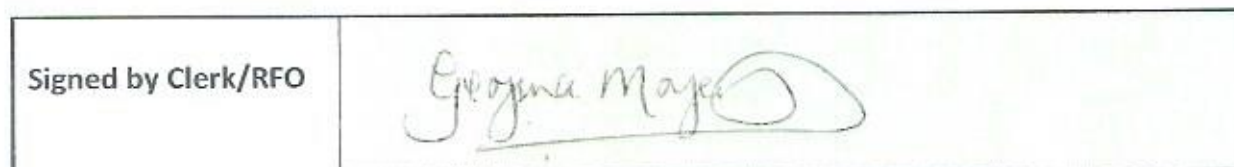 Signed by Clerk/RFO
Georgina